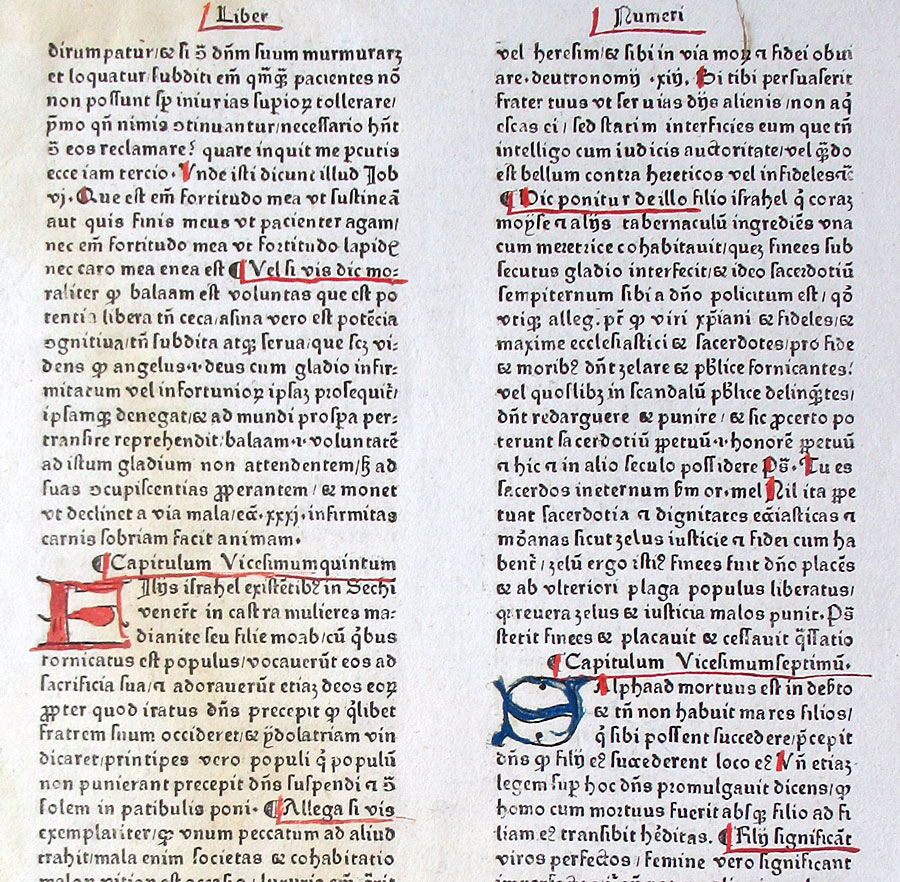 Liber
dirumpatur/ & ſi ꝯ̄ dn̄m ſuum murmurarꝫ
et loquatur/ ſubditi em̄ qm̄qꝫ pacientes nō
non poſſunt ſꝑ iniurias ſupioꝝ tollerare/
pͥmo qn̄ nimis ꝯtinuantur/ neceſſario hn̄t
ꝯ̄ eos reclamare? quare inquit me ꝑcutis
ecce iam tercio. Unde iſti dicunt illud Job
vj. Que eſt em̄ fortitudo mea vt ſuſtineā
aut quis finis meus vt pacienter agam/
nec em̄ fortitudo mea vt fortitudo lapidꝫ
nec caro mea enea eſt ¶ Vel ſi vis dic mo⸗
raliter ꝙ balaam eſt voluntas que eſt po
tentia libera tn̄ ceca/ aſina vero eſt potēcia
ꝯgnitiua/ tn̄ ſubdita atqꝫ ſerua/ que ſcꝫ vi⸗
dens ꝙ angelus .i. deus cum gladio infir⸗
mitatum vel infortunioꝝ ipſaꝫ proſequit᷑/
ipſamqꝫ denegat/ & ad mundi proſꝑa per⸗
tranſire reprehendit/ balaam .i. voluntatē
ad iſtum gladium non attendentem/ ſꝫ ad
ſuas ꝯcupiſcentias ꝓperantem/ & monet
vt declinet a via mala/ eccͣ. xxxj. infirmitas
carnis ſobriam facit animam.
¶ Capitulum Viceſimumquintum
Filijs iſrahel exiſtētibꝰ in Sechi
venerūt in caſtra mulieres ma⸗
dianite ſeu filie moab/ cū qͥbus
fornicatus eſt populus/ vocauerūt eos ad
ſacrificia ſua/ ⁊ adorauerūt etiaꝫ deos eoꝝ
ꝓpter quod iratus dn̄s precepit ꝙ qͥlibet
fratrem ſuum occideret/ & ydolatriam vin
dicaret/ printipes vero populi qͥ populū
non punierant precepit dn̄s ſuſpendi ⁊ ꝯ̄
ſolem in patibulis poni. ¶ Allega ſi vis
exemplariter/ ꝙ vnum peccatum ad aliud
trahit/ mala enim ſocietas & cohabitatio
Numeri
vel hereſim/ & ſibi in via moꝝ ⁊ fidei obui
are. deutronomij .xiij. Si tibi perſuaſerit
frater tuus vt ſeruias dijs alienis/ non acqͥ
eſcas ei/ ſed ſtatim interficies eum que tn̄
intelligo cum iudicis auctoritate/ vel qn̄do
eſt bellum contra hereticos vel infideles ⁊c̄
¶ Dic ponitur de illo filio iſrahel qͥ coraꝫ
moyſe ⁊ alijs tabernaculū ingrediēs vna
cum meretrice cohabitauit/ queꝫ finees ſub
ſecutus gladio interfecit/ & ideo ſacerdotiū
ſempiternum ſibi a dn̄o policitum eſt/ qď
vtiqꝫ alleg. pr̄ ꝙ viri xp̄iani & fideles/ &
maxime eccleſiaſtici & ſacerdotes/ pro fide
& moribꝰ dn̄t zelare & pb̄lice fornicantes/
vel quoſlibꝫ in ſcandalū pb̄lice delinqͣtes/
dn̄t redarguere & punire/ & ſic ꝓcerto po
terunt ſacerdotiū ꝑpetuū .i. honorē ꝑpetuū
⁊ hic ⁊ in alio ſeculo poſſidere pſ̄. Tu es
ſacerdos ineternum ẜm or. mel Nil ita ꝑpe
tuat ſacerdotia ⁊ dignitates ecc̄iaſticas ⁊
mūdanas ſicut zelus iuſticie ⁊ fidei cum ha
benẗ/ zelū ergo iſtiꝰ finees fuit dn̄o placēs
& ab vlteriori plaga populus liberatus/
qꝛ reuera zelus & iuſticia malos punit. Pſ̄
ſtetit finees & placauit & ceſſauit qͣſſatio
¶ Capitulum Viceſimumſeptimū.
Salphaad mortuus eſt in deẜto
& tn̄ non habuit mares filios/
qͥ ſibi poſſent ſuccedere/ p̄cepit
dn̄s ꝙ filij eꝰ ſuccederent loco eꝰ Vn̄ etiaꝫ
legem ſup hoc dn̄s promulgauit dicens/ ꝙ
homo cum mortuus fuerit abſqꝫ filio ad fi
liam eꝰ tranſibit hēditas. ¶ Filij ſignificāt
viros perfectos/ femine vero ſignificant